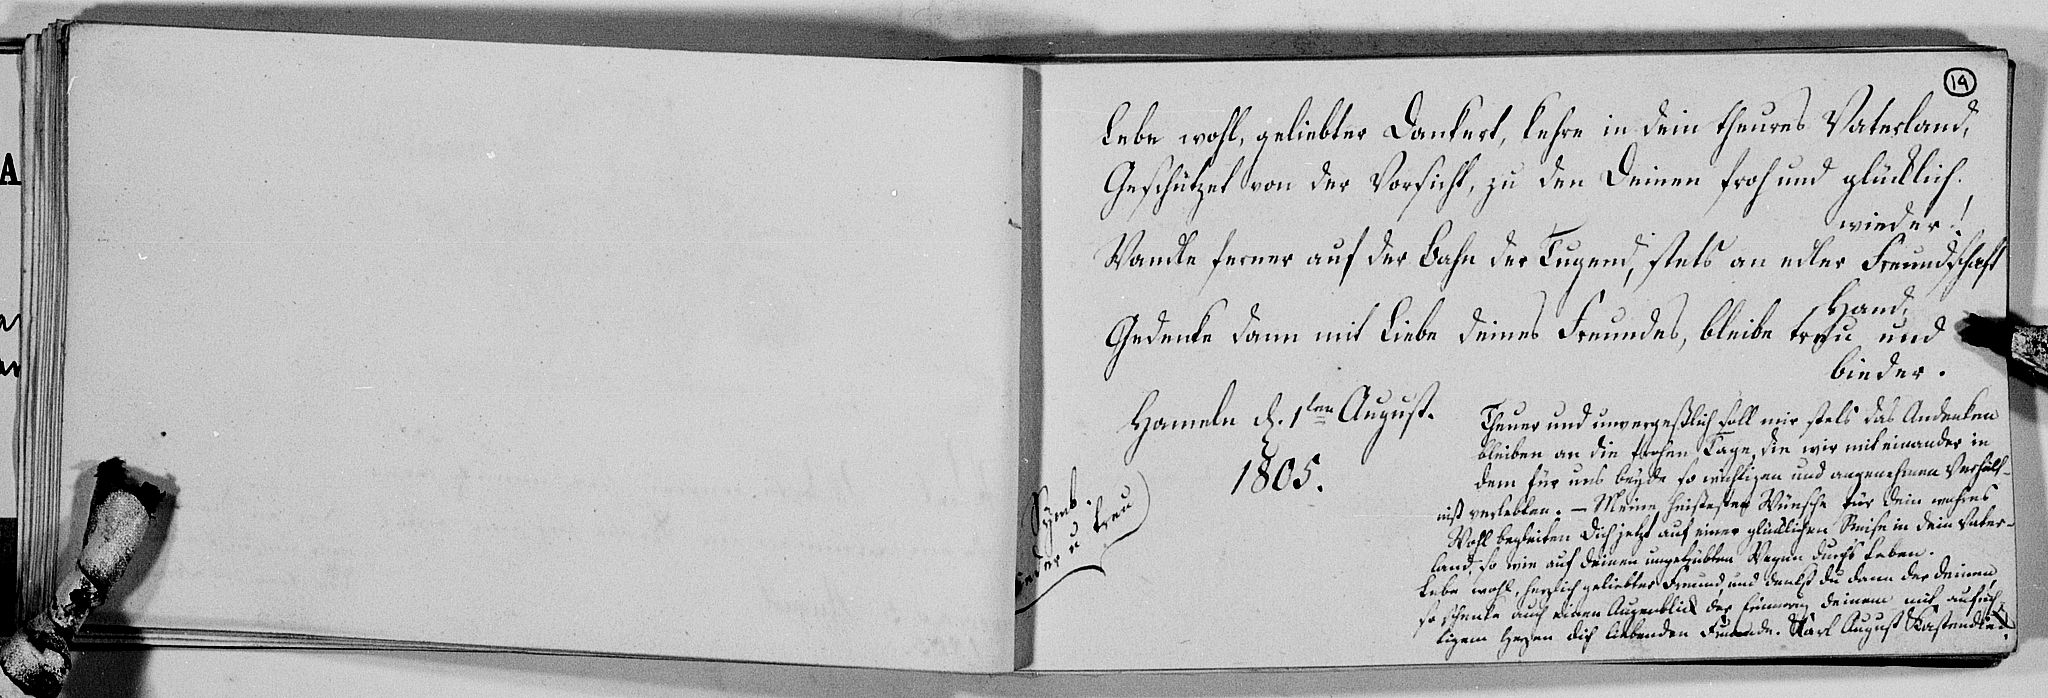 19
Lebe wohl, geliebter Dankert, kehre in dein theures Vaterland,
Geschützet von der Vorsicht, zu den Deinen froh und glücklich
wieder!
Wandle ferner auf der Bahn der Tugend, stets an edler Freundschaft
Hand,
Gedenke dann mit Liebe deines Freundes, bleibe treu und
bieder.
Hameln d. 1ten August.
1805.
Symb.
bieder u treu
Theuer und unvergeßlich soll mir stets das Andenken
bleiben an die frohen Tage, die wir miteinander in
dem für uns beyde so wichtigen und angenehmen Verhält-
niß verlebten. – Meine heißesten Wünsche für Dein wahres
Wohl begleiten Dich jetzt auf einer glücklichen Reise in dein Vater-
land, so wie auf deinen ungetrübten Wegen durch's Leben.
Lebe wohl, herzlich geliebter Freund, und denkst du dann der deinen,
so schenke auch einen Augenblick der Erinnerung deinem mit aufrich-
tigem Herzen dich liebenden Freunde. Karl August Kastendiek.
A